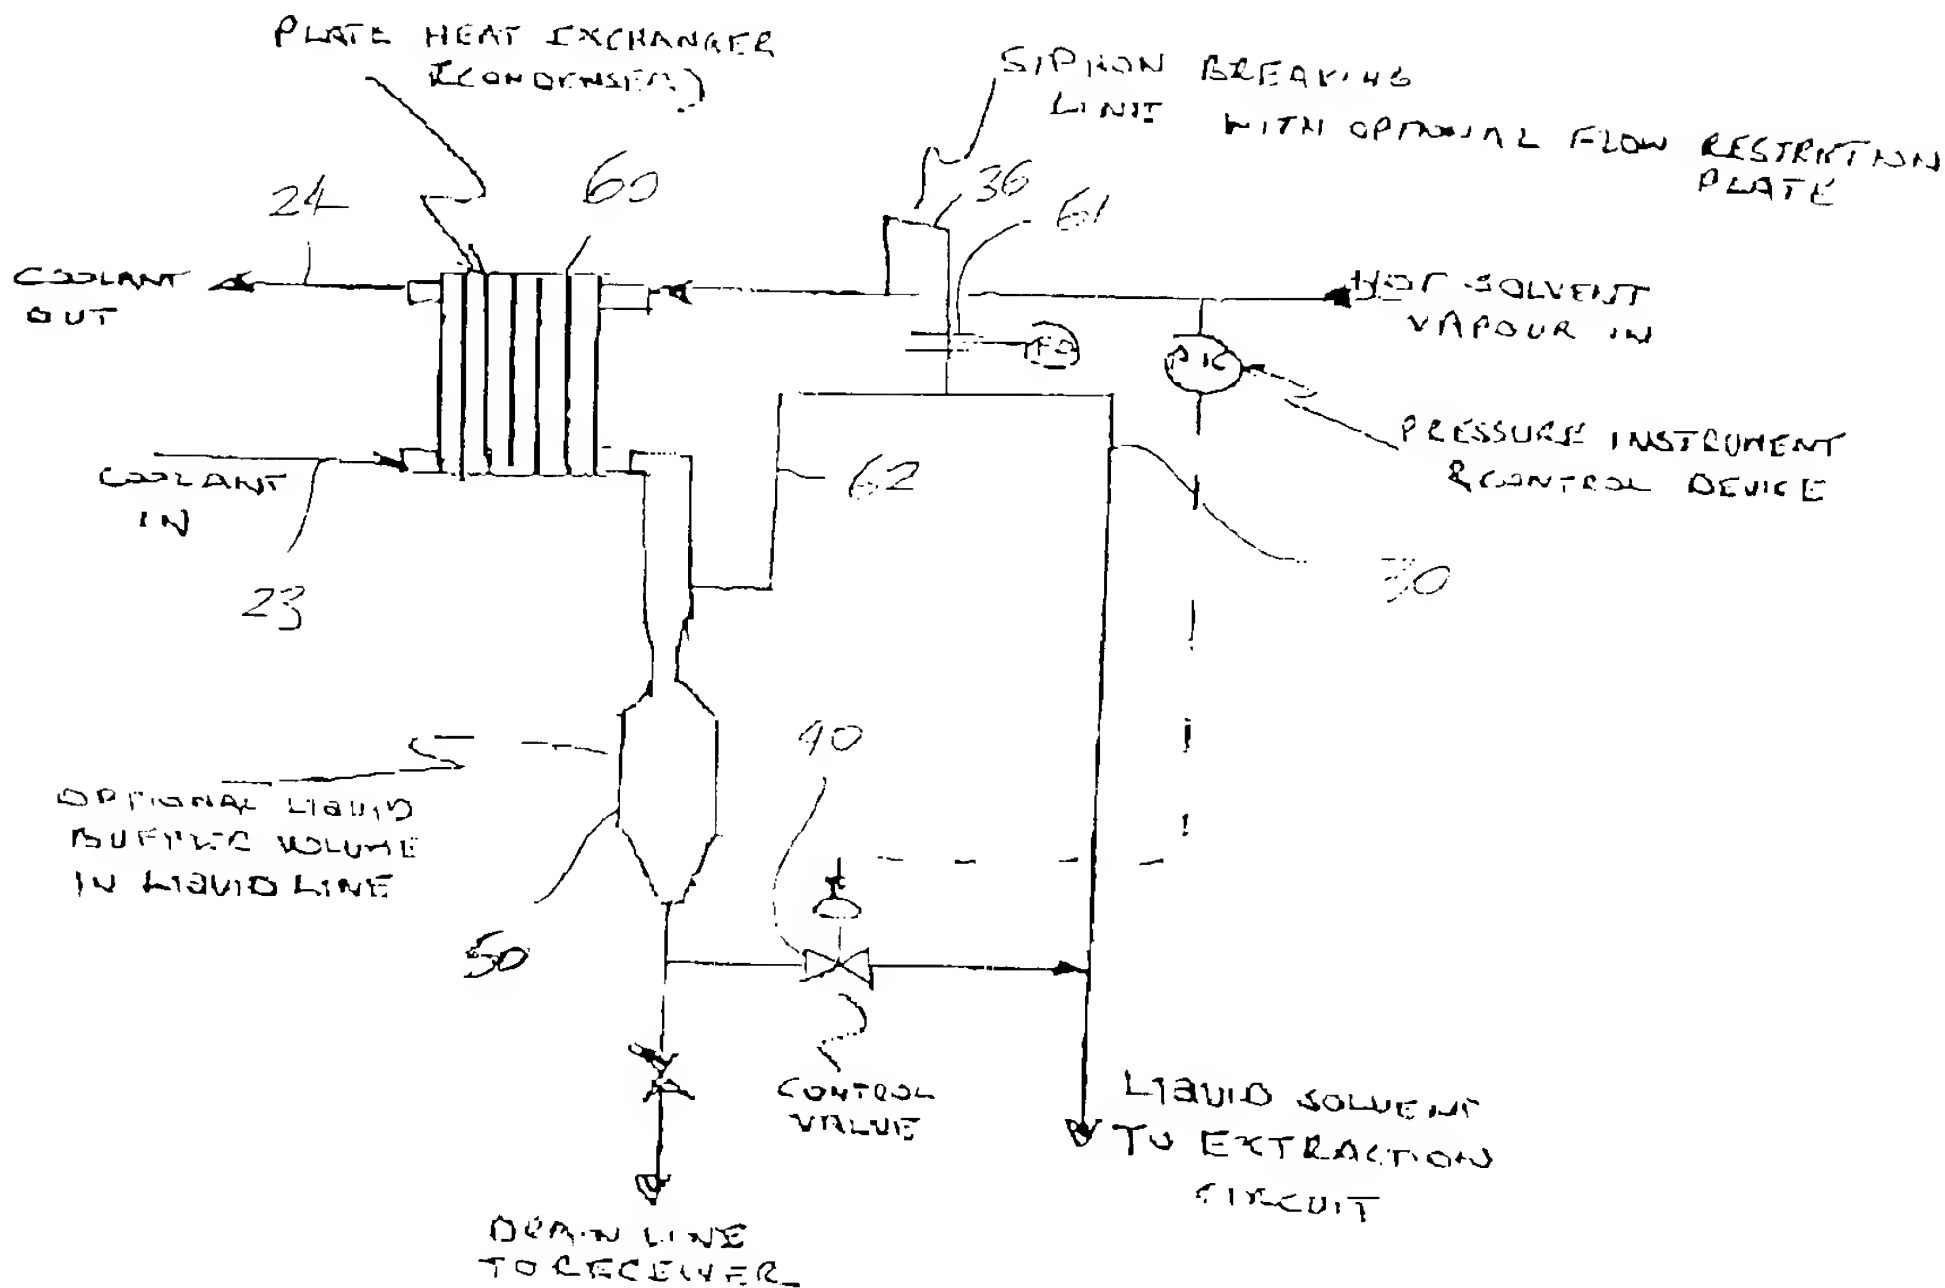 PLATE HEAT EXCHANGER
(CONDENSER)
SIPHON BREAKING
LINE WITH OPTIONAL FLOW RESTRICTION
PLATE
24
60
36
61
COOLANT
OUT
HOT SOLVENT
VAPOUR IN
PIC
PRESSURE INSTRUMENT
& CONTROL DEVICE
COOLANT
IN
62
30
23
40
OPTIONAL LIQUID
BUFFER VOLUME
IN LIQUID LINE
50
CONTROL
VALVE
LIQUID SOLVENT
TO EXTRACTION
CIRCUIT
DRAIN LINE
TO RECEIVER